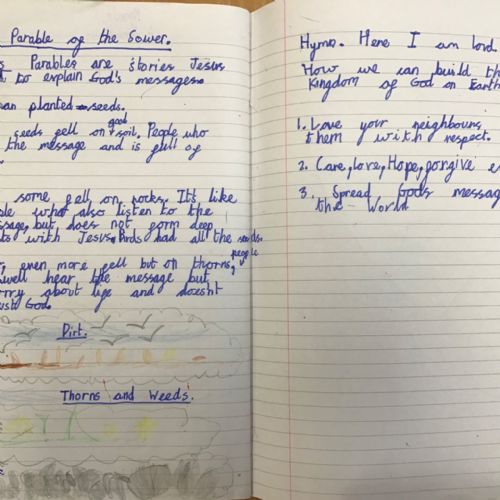 Parable of the Sower.
Parables are stories Jesus
to explain God's messages.
planted seeds.
seeds fell on good soil, People who
the message and is full of
some fell on rocks. It's like
what also listen to the
but does not form deep
with Jesus. Birds had all the seeds.
even more fell but on thorns, people
well hear the message but
about life and doesnt
God.
Dirt.
Thorns and Weeds.
Hymn. Here I am lord
How we can build th
Kingdom of God on Earth
1. Love your neighbours,
them with respect.
2. Care, love, Hope, forgive e
3. Spread Gods messag
the World